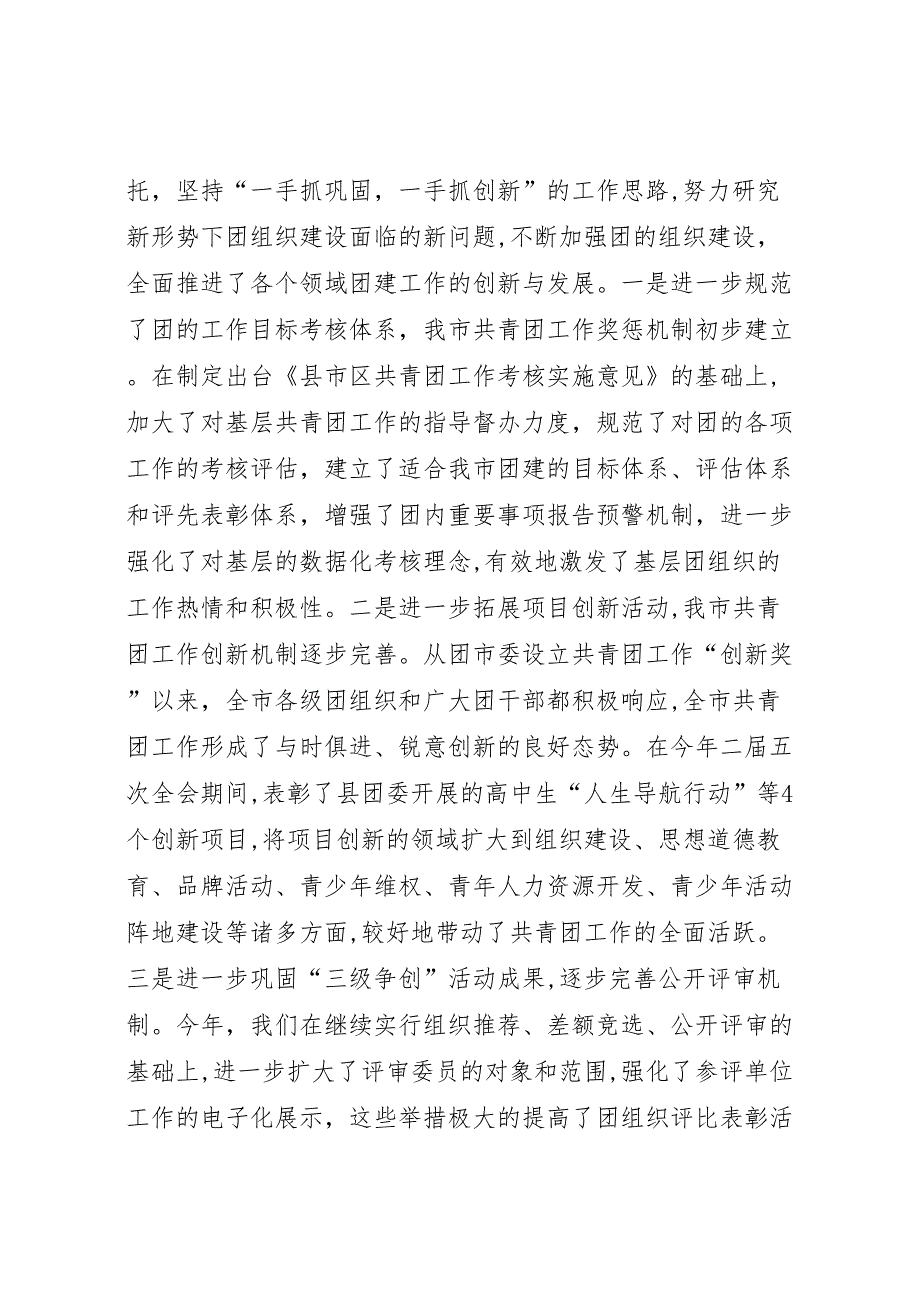 托，坚持“一手抓巩固，一手抓创新”的工作思路,努力研究
新形势下团组织建设面临的新问题,不断加强团的组织建设，
全面推进了各个领域团建工作的创新与发展。一是进一步规范
了团的工作目标考核体系，我市共青团工作奖惩机制初步建立
。在制定出台《县市区共青团工作考核实施意见》的基础上，
加大了对基层共青团工作的指导督办力度，规范了对团的各项
工作的考核评估，建立了适合我市团建的目标体系、评估体系
和评先表彰体系，增强了团内重要事项报告预警机制，进一步
强化了对基层的数据化考核理念,有效地激发了基层团组织的
工作热情和积极性。二是进一步拓展项目创新活动,我市共青
团工作创新机制逐步完善。从团市委设立共青团工作“创新奖
”以来，全市各级团组织和广大团干部都积极响应,全市共青
团工作形成了与时俱进、锐意创新的良好态势。在今年二届五
次全会期间,表彰了县团委开展的高中生“人生导航行动”等4
个创新项目,将项目创新的领域扩大到组织建设、思想道德教
育、品牌活动、青少年维权、青年人力资源开发、青少年活动
阵地建设等诸多方面,较好地带动了共青团工作的全面活跃。
三是进一步巩固“三级争创”活动成果,逐步完善公开评审机
制。今年，我们在继续实行组织推荐、差额竞选、公开评审的
基础上,进一步扩大了评审委员的对象和范围,强化了参评单位
工作的电子化展示，这些举措极大的提高了团组织评比表彰活